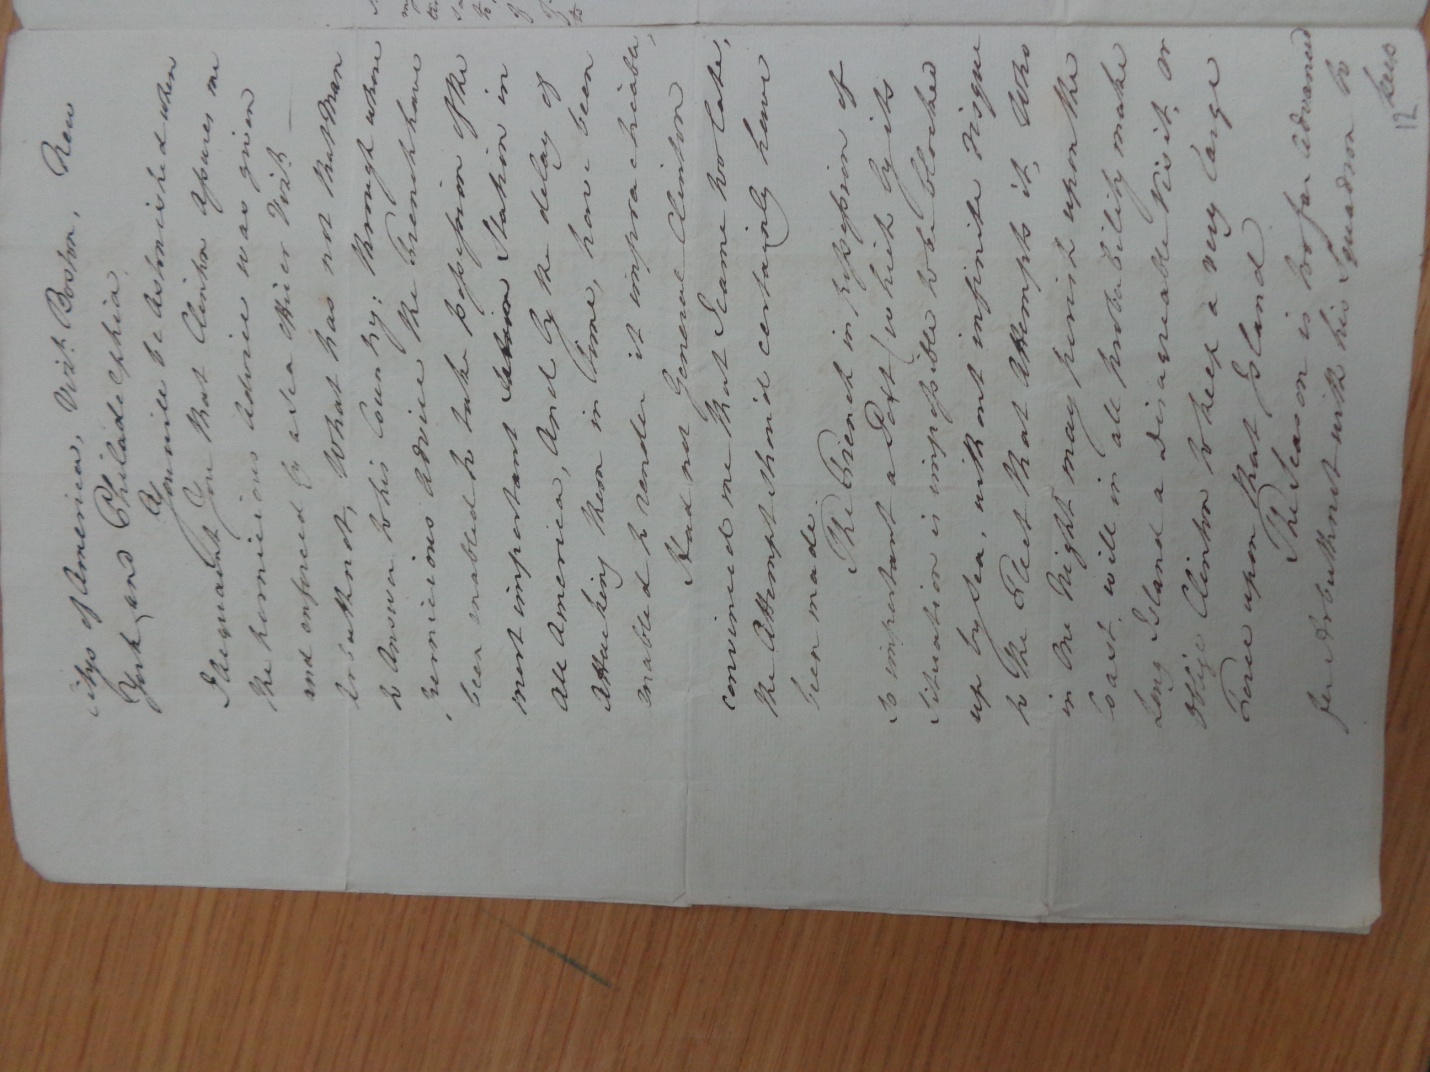 itys of America, Vizt. Boston, New
York, and Philadelphia.
You will be astonished when
I acquaint You that Clinton assures me
the pernicious advice was given
and enforced by a Sea Officer Vizt.
Arbuthnot, What has not that Man
to Answer to his Country: through whose
pernicious advice the French have
been enabled to take possession of the
most important Station in
all America, And by the delay of
attacking them in time, have been
enabled to render it impracticable,
Had not General Clinton
convinced me that I came too late,
the Attempt should certainly have
been made.
The French in possession of
so important a Post (which by its
situation is impossible to be blocked
up by Sea, without infinite risque
to the Fleet that Attempts it, Who
in One Night may perish upon the
Coast, will in all probability make
Long Island a disagreable Visit, or
oblige Clinton to keep a very large
Force upon that Island
The Season is too far advanced
for Arbuthnot with his Squadron to
keep
12